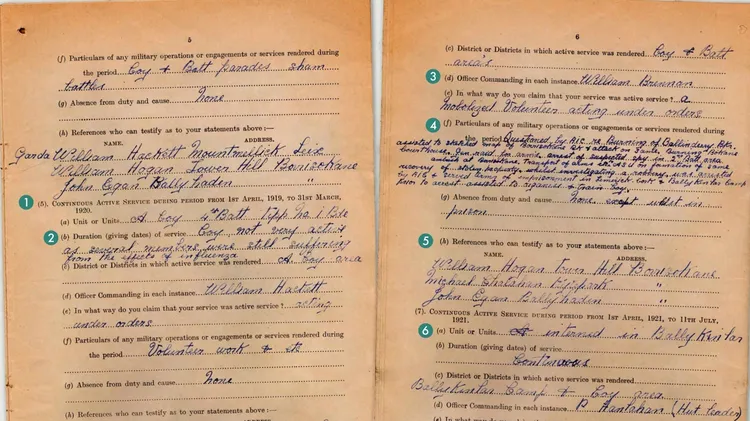 5
(f) Particulars of any military operations or engagements or services rendered during
the period Coy & Batt parades sham
battles
(g) Absence from duty and cause None
(h) References who can testify as to your statements above :—
NAME. ADDRESS.
Garda William Hackett Mountmellick Leix
William Hogan Tower Hill Borrisokane
John Egan Ballyhaden "
1 (5). CONTINUOUS ACTIVE SERVICE DURING PERIOD FROM 1ST APRIL, 1919, TO 31ST MARCH,
1920.
(a) Unit or Units A Coy 4th Batt Tipp No 1 Bde
2 (b) Duration (giving dates) of service Coy not very active
as several members were still suffering
from the effects of influenza
(c) District or Districts in which active service was rendered A Coy area
(d) Officer Commanding in each instance William Hackett
(e) In what way do you claim that your service was active service? acting
under orders
(f) Particulars of any military operations or engagements or services rendered during
the period Volunteer work & etc
(g) Absence from duty and cause None
(h) References who can testify as to your statements above :—
6
(c) District or Districts in which active service was rendered Coy & Batt
area's
3 (d) Officer Commanding in each instance William Brennan
(e) In what way do you claim that your service was active service? a
Mobolized Volunteer acting under orders
4 (f) Particulars of any military operations or engagements or services rendered during
the period Questioned by RIC re Burning of Ballinderry Bks.
assisted to sketch map of Borrisokane Bks & attack on same. Burning Borrisokane
Courthouse, Jun. raid for arms, arrest of suspected spy in 2nd Batt area
recovery of stolen property, whilst investigating a robbery was arrested
by RIC & served term of imprisonment in Limerick Cork & Ballykinlar Camp
prior to arrest assisted to organise & train Coy.
(g) Absence from duty and cause None except whilst in
prison
5 (h) References who can testify as to your statements above :—
NAME. ADDRESS.
William Hogan Town Hill Borrisokane
Michael "
John Egan Ballyhaden "
(7). CONTINUOUS ACTIVE SERVICE DURING PERIOD FROM 1ST APRIL, 1921, TO 11TH JULY,
1921.
6 (a) Unit or Units interned in Ballykinlar
(b) Duration (giving dates) of service
Continuous
(c) District or Districts in which active service was rendered
Ballykinlar Camp & Coy area
(d) Officer Commanding in each instance P Hanrahan (Hut leader)